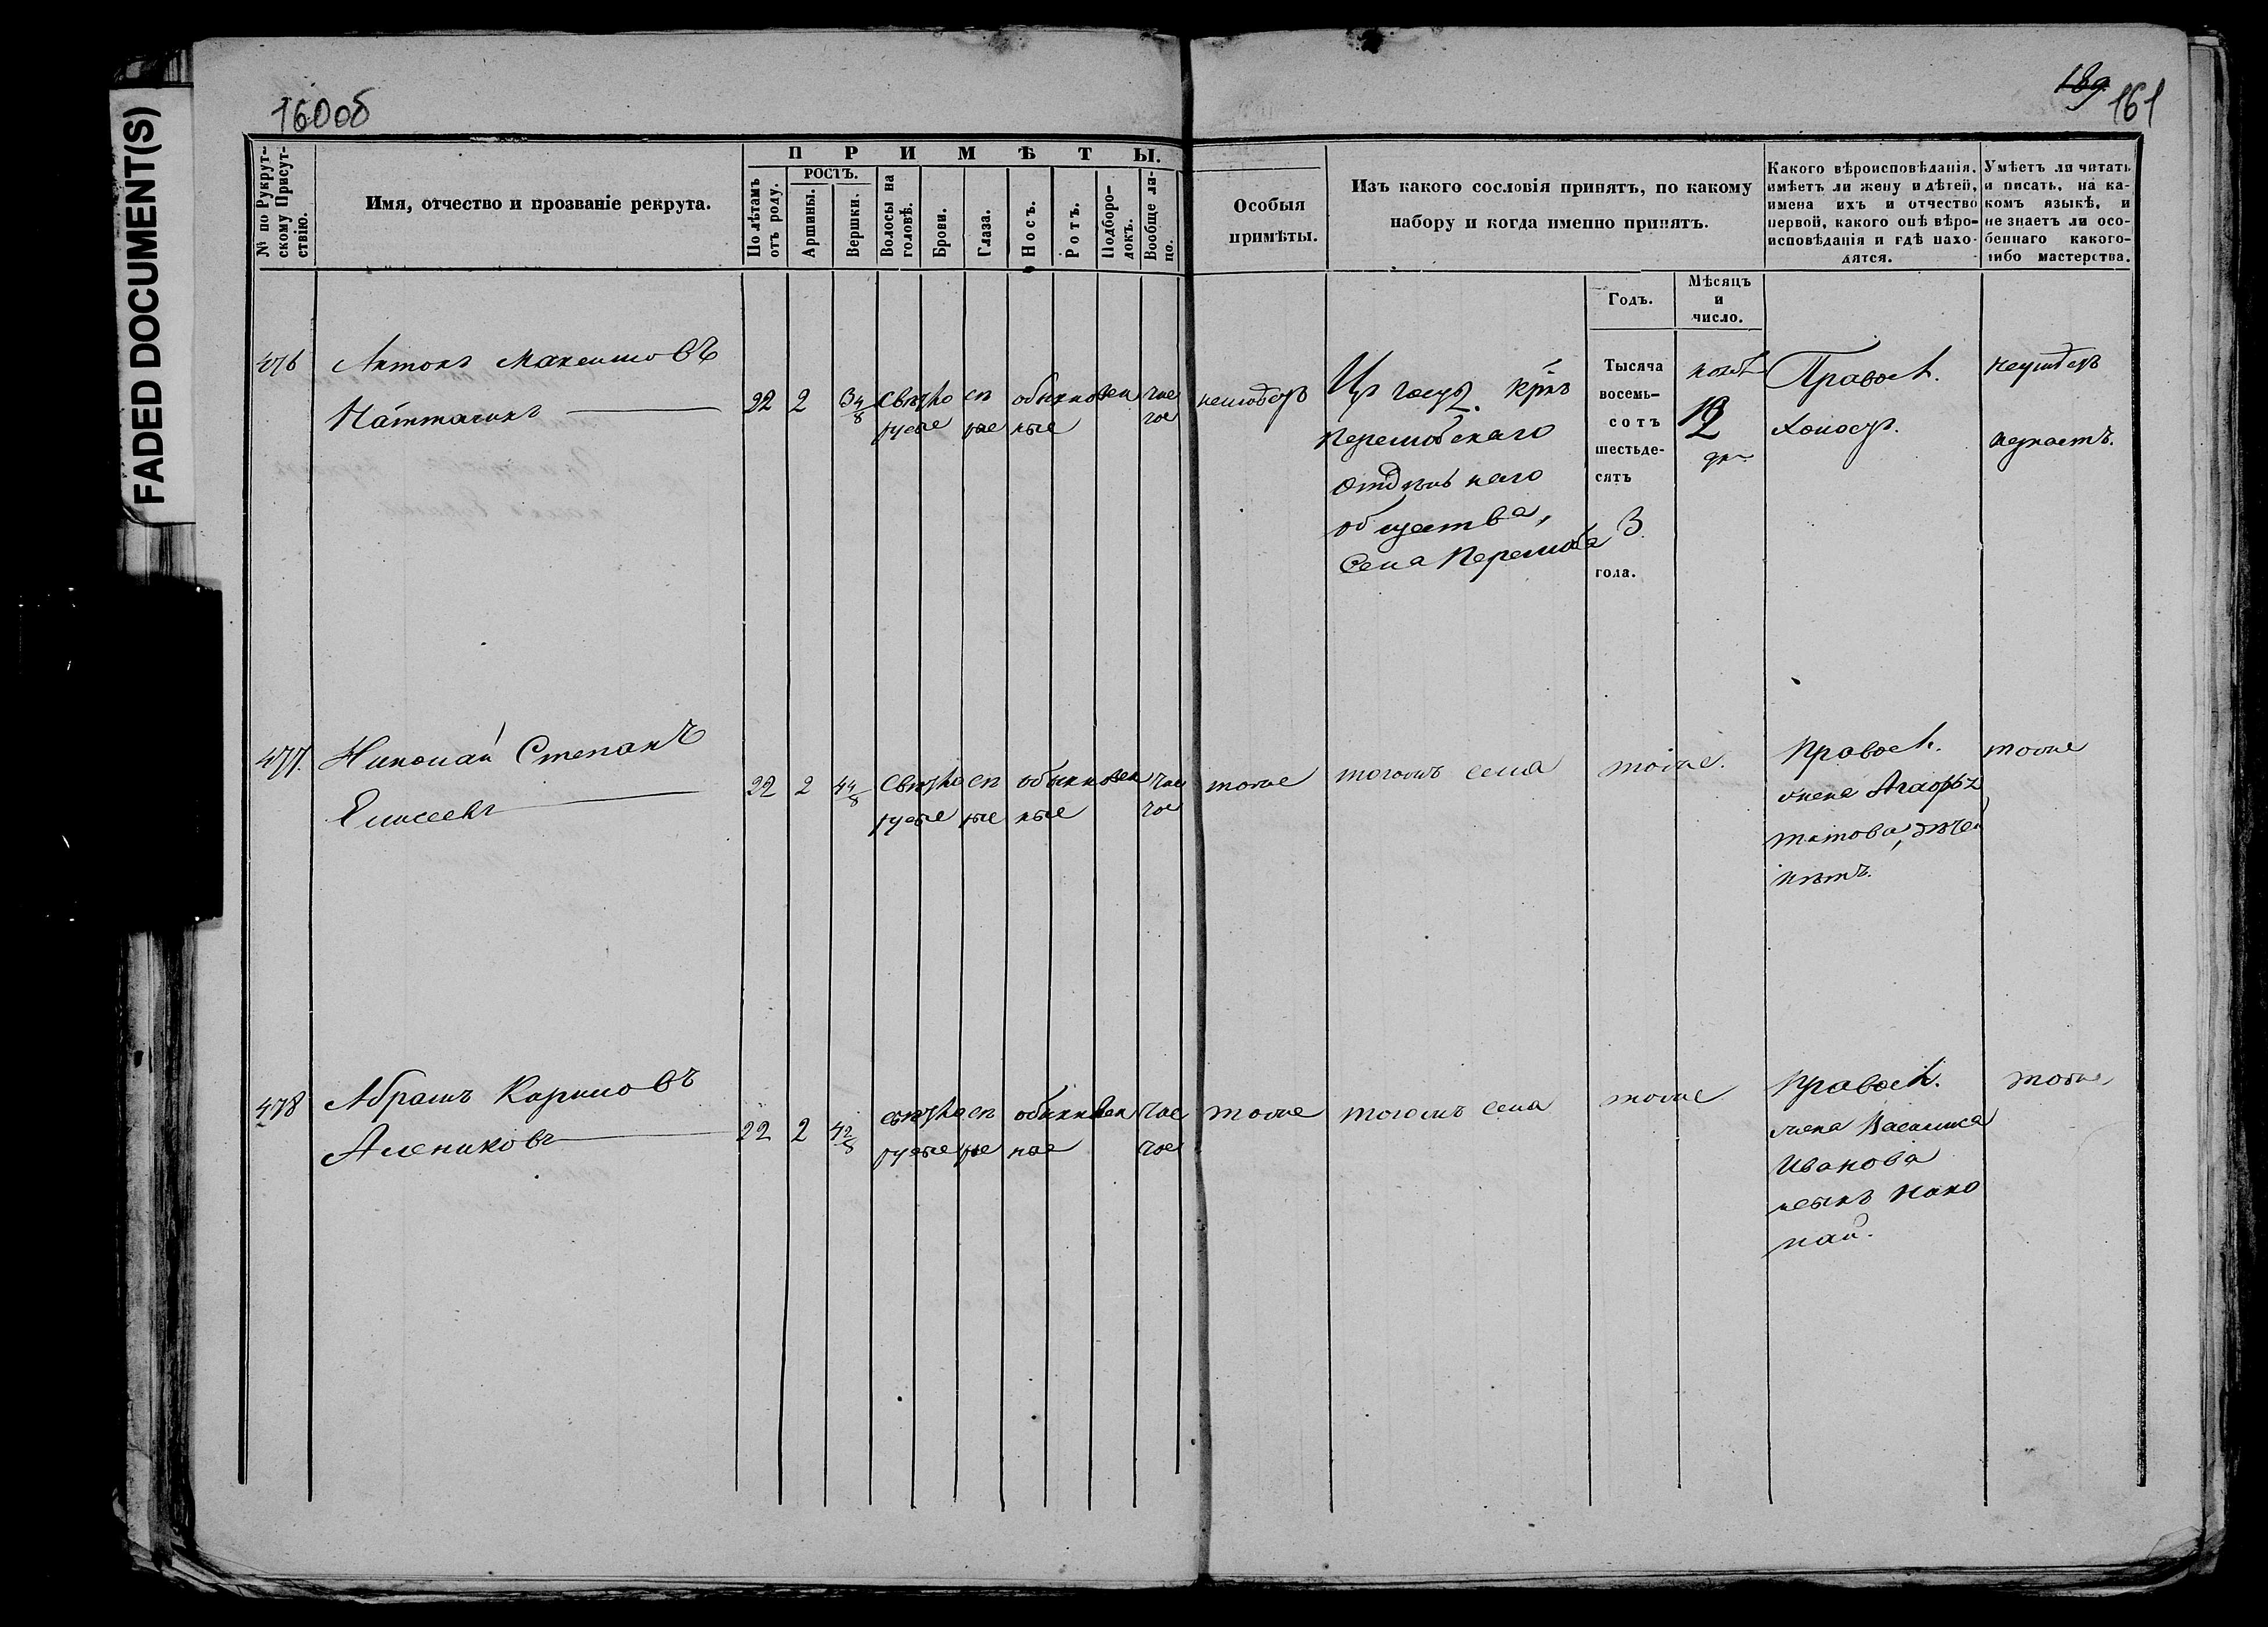 FADED DOCUMENT(S)
160об
189
161
№ по Рукрут-
скому Присут-
ствію.
Имя, отчество и прозваніе рекрута.
ПРИМѢТЫ.
По лѣтамъ
отъ роду.
РОСТЪ.
Аршины.
Вершки.
Волосы на
головѣ.
Брови.
Глаза.
Носъ.
Ротъ.
Подборо-
докъ.
Вообще ли-
цо.
Особыя
примѣты.
Изъ какого сословія принятъ, по какому
набору и когда именно принятъ.
Какого вѣроисповѣданія,
имѣетъ ли жену и дѣтей,
имена ихъ и отчество
первой, какого онѣ вѣро-
исповѣданія и гдѣ нахо-
дятся.
Умѣетъ ли читать
и писать, на ка-
комъ языкѣ, и
не знаетъ ли осо-
беннаго какого-
либо мастерства.
Годъ.
Мѣсяцъ
и
число.
476
Антонъ Максимовъ
22 2 3 4/8 свѣтло сѣ обыкновен чис
русые рые ные тое
Изъ госуд. крнъ
Перелюбскаго
отдѣльнаго
общества,
села Перелюба
Тысяча
восемь-
сотъ
шестьде-
сятъ
3
гола.
Правосл.
холостъ.
неумѣетъ
незнаетъ.
477.
Николай Степанъ
Елисеевъ
22 2 4 4/8 свѣтло сѣ обыкновен чис
русые рые ные тое
тоже
тогожъ села
тоже.
Правосл.
жена Агафья
Титова, дѣтей
нѣтъ.
тоже
478
Абрамъ Карповъ
Алениковъ
22 2 4 2/8 свѣтло сѣ обыкновен чис
русые рые ные тое
тоже
тогожъ села
тоже
Правосл.
жена Василиса
Иванова
сынъ Нико
лай.
тоже